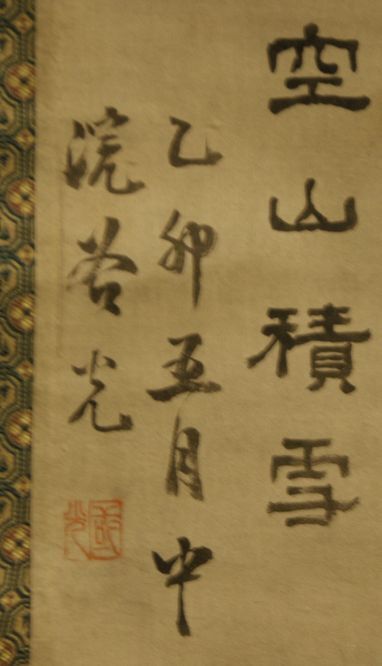 空山積雪
乙卯五月中
光